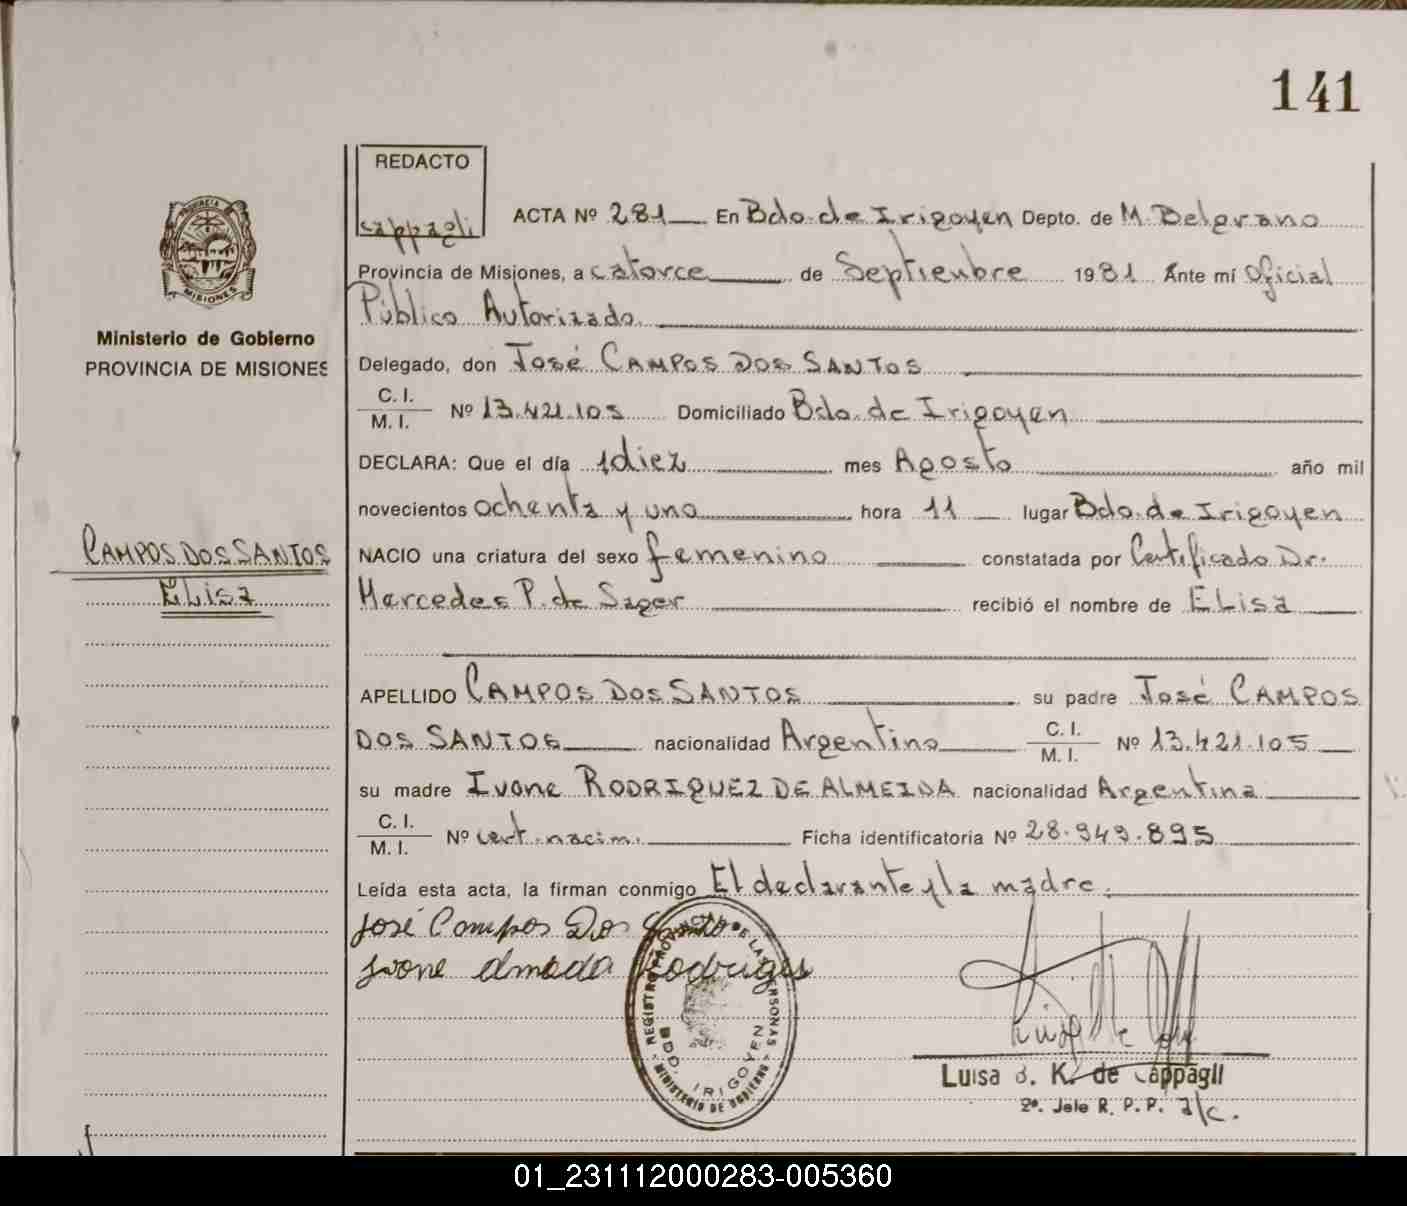 141
REDACTO
cappagli
PROVINCIA DE MISIONES
ACTA Nº 281 En Bdo. de Irigoyen Depto. de M. Belgrano
Provincia de Misiones, a catorce de Septienbre 1981 Ante mí Oficial
Público Autorizado
Ministerio de Gobierno
PROVINCIA DE MISIONES
Delegado, don José CAMPOS DOS SANTOS
C. I.
M. I. Nº 13.421.105 Domiciliado Bdo. de Irigoyen
DECLARA: Que el día 1diez mes Agosto año mil
novecientos ochenta y uno hora 11 lugar Bdo. de Irigoyen
CAMPOS DOS SANTOS
ELisa
NACIO una criatura del sexo femenino constatada por Certificado Dr.
Mercedes P. de Sager recibió el nombre de ELisa
APELLIDO CAMPOS DOS SANTOS su padre José CAMPOS
DOS SANTOS nacionalidad Argentino C. I. M. I. Nº 13.421.105
su madre Ivone RODRIGUEZ DE ALMEIDA nacionalidad Argentina
C. I.
M. I. Nº cert. nacim. Ficha identificatoria Nº 28.949.895
Leída esta acta, la firman conmigo El declarante y la madre.
José Campos Dos Santo
Ivone Almeda Rodrigues
REGISTRO PROVINCIAL DE LAS PERSONAS
BDO. IRIGOYEN
MINISTERIO DE GOBIERNO
Luisa K. de Cappagli
2º. Jefe R. P. P. a/c.
01_231112000283-005360